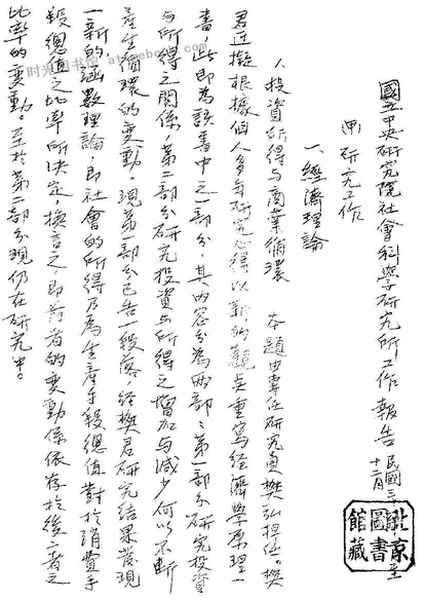 國立中央研究院社會科學研究所工作報告 民國三
十二月 至
甲 研究工作
一、經濟理論
1.投資所得與商業循環 本題由專任研究員樊弘担任。樊
君近擬根據個人多年研究心得以新的觀點重寫經濟學原理一
書,此即為該書中之一部分,其內容分為兩部:第一部分研究投資
与所得之關係,第二部分研究投資与所得之增加与減少何以不斷
產生循環的變動。現第一部分已告一段落,經樊君研究結果發現
一新的函數理論,即社會的所得乃為生產手段總值對於消費手
段總值之比率所決定,換言之,即前者的變動係依存於後二者之
比率的變動。至於第二部分現仍在研究中。
北京
圖書
館藏